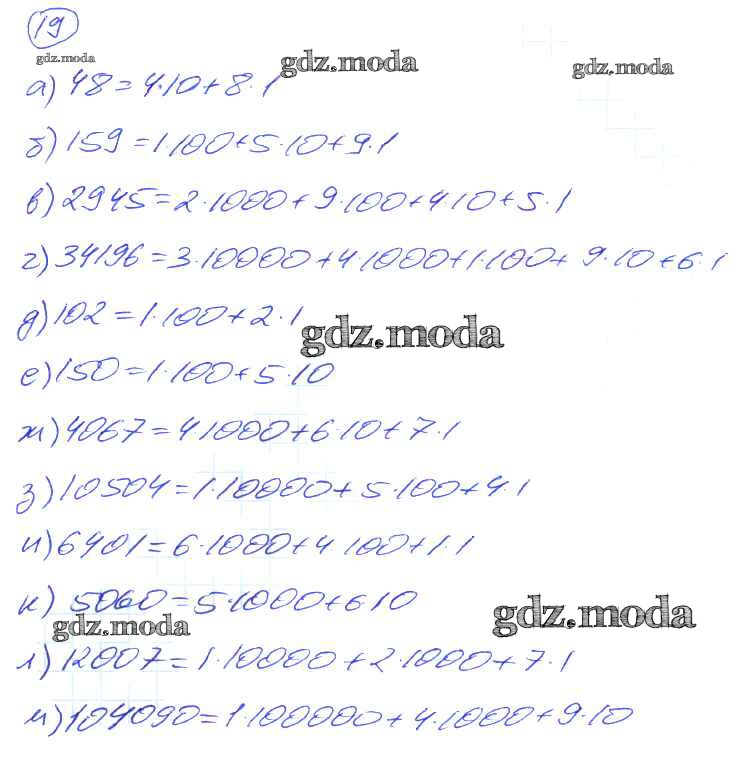 19
gdz.moda
gdz.moda
gdz.moda
а) 48 = 4·10 + 8·1
б) 159 = 1·100 + 5·10 + 9·1
в) 2945 = 2·1000 + 9·100 + 4·10 + 5·1
г) 34196 = 3·10000 + 4·1000 + 1·100 + 9·10 + 6·1
д) 102 = 1·100 + 2·1
gdz.moda
е) 150 = 1·100 + 5·10
ж) 4067 = 4·1000 + 6·10 + 7·1
з) 10504 = 1·10000 + 5·100 + 4·1
и) 6401 = 6·1000 + 4 100 + 1·1
к) 5060 = 5·1000 + 6·10
gdz.moda
gdz.moda
л) 12007 = 1·10000 + 2·1000 + 7·1
м) 104090 = 1·100000 + 4·1000 + 9·10